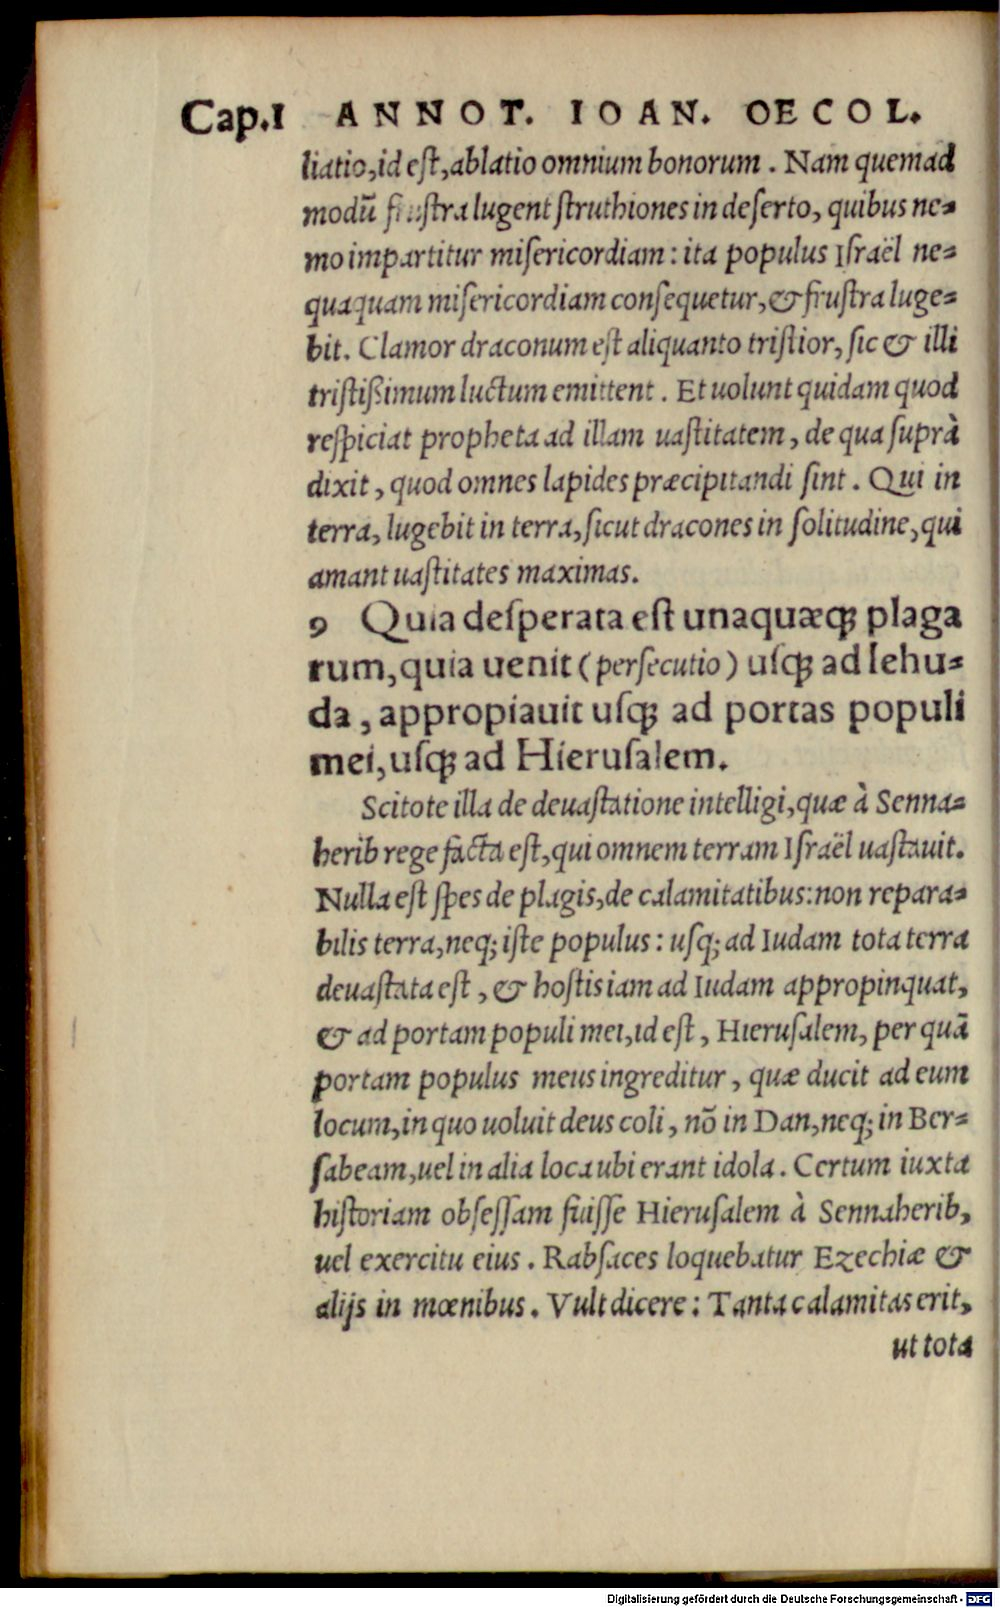 Cap.I ANNOT. IOAN. OECOL.
liatio,id eſt,ablatio omnium bonorum. Nam quemad
modū fruſtra lugent ſtruthiones in deſerto, quibus ne⸗
mo impartitur miſericordiam: ita populus Iſraël ne⸗
quaquam miſericordiam conſequetur,& fruſtra luge⸗
bit. Clamor draconum eſt aliquanto triſtior, ſic & illi
triſtiſsimum luctum emittent. Et uolunt quidam quod
reſpiciat propheta ad illam uaſtitatem, de qua ſuprà
dixit, quod omnes lapides præcipitandi ſint. Qui in
terra, lugebit in terra, ſicut dracones in ſolitudine, qui
amant uaſtitates maximas.
9 Quia deſperata eſt unaquæq; plaga
rum, quia uenit (perſecutio) uſq; ad Iehu⸗
da, appropiauit uſq; ad portas populi
mei, uſq; ad Hieruſalem.
Scitote illa de deuaſtatione intelligi, quæ à Senna⸗
herib rege facta eſt, qui omnem terram Iſraël uaſtauit.
Nulla eſt ſpes de plagis, de calamitatibus: non repara⸗
bilis terra, neq; iſte populus: uſq; ad Iudam tota terra
deuaſtata eſt, & hoſtis iam ad Iudam appropinquat,
& ad portam populi mei, id eſt, Hieruſalem, per quā
portam populus meus ingreditur, quæ ducit ad eum
locum, in quo uoluit deus coli, nō in Dan, neq; in Ber⸗
ſabeam, uel in alia loca ubi erant idola. Certum iuxta
hiſtoriam obſeſſam fuiſſe Hieruſalem à Sennaherib,
uel exercitu eius. Rabſaces loquebatur Ezechiæ &
alijs in mœnibus. Vult dicere: Tanta calamitas erit,
ut tota
Digitalisierung gefördert durch die Deutsche Forschungsgemeinschaft - DFG